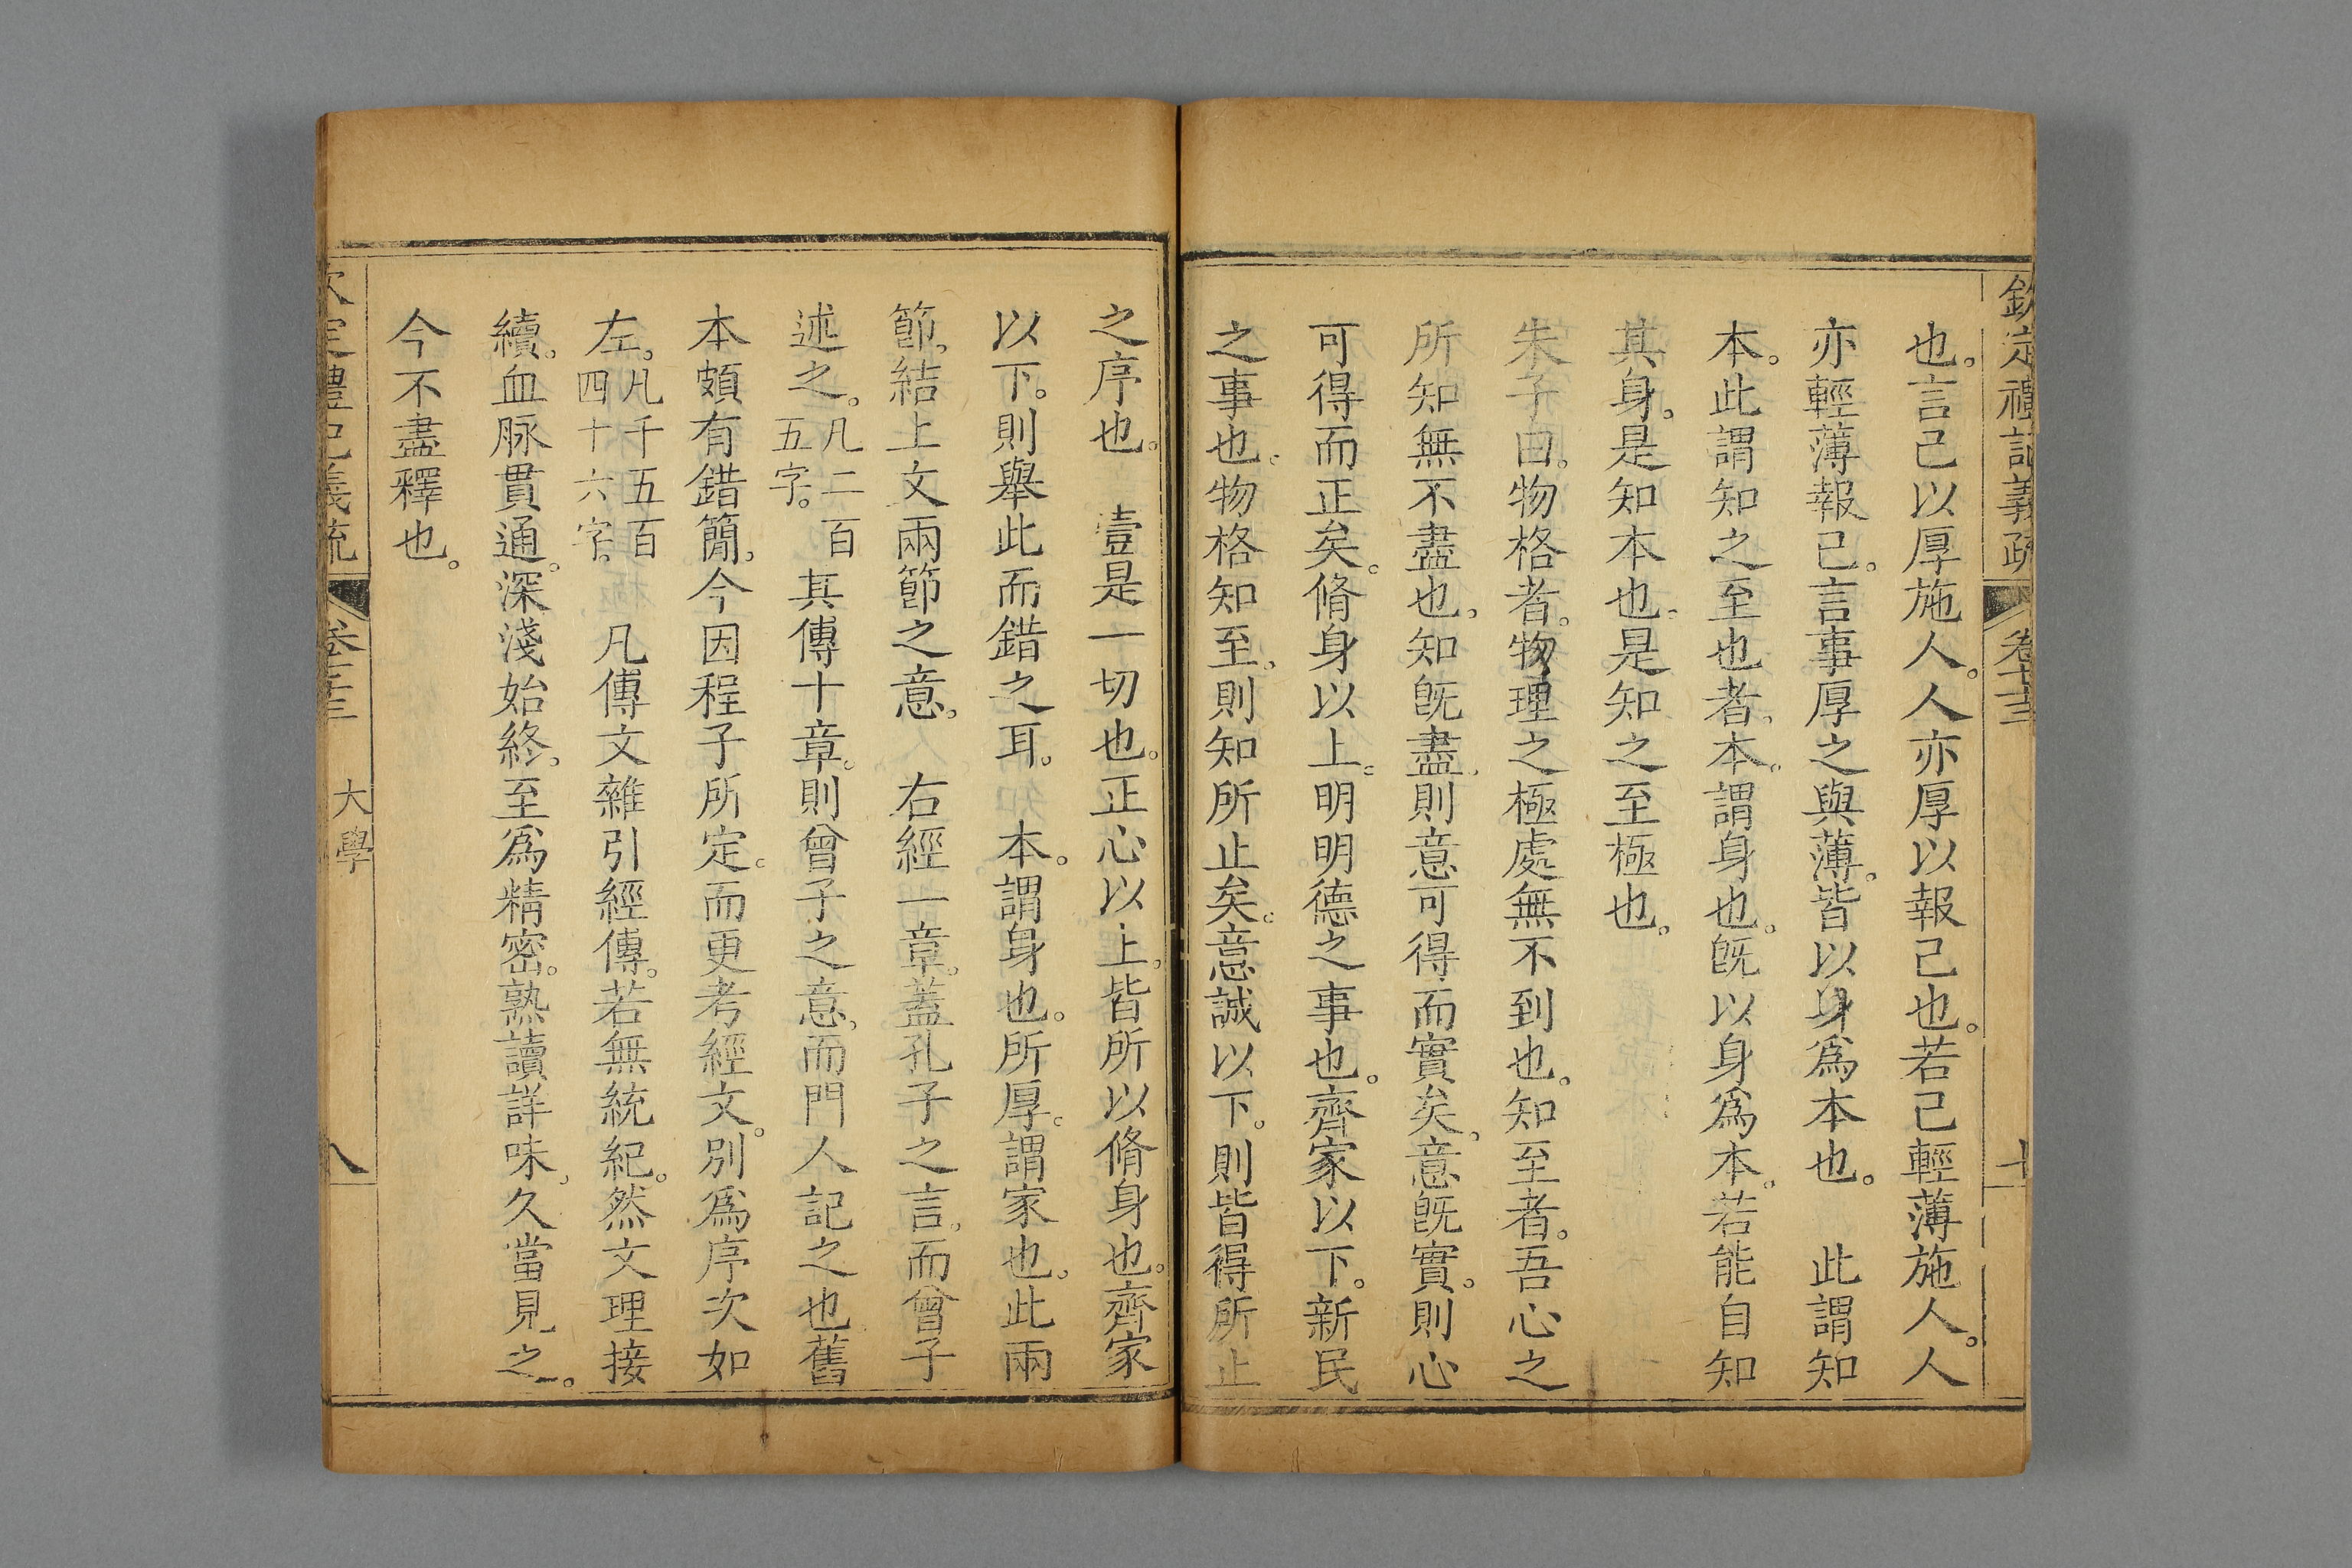 欽定禮記義疏 卷七十三 十
也。言己以厚施人。人亦厚以報己也。若己輕薄施人。人
亦輕薄報己。言事厚之與薄。皆以身爲本也。 此謂知
本。此謂知之至也者。本。謂身也。旣以身爲本。若能自知
其身。是知本也。是知之至極也。
朱子曰。物格者。物理之極處無不到也。知至者。吾心之
所知無不盡也。知旣盡。則意可得而實矣。意旣實。則心
可得而正矣。脩身以上。明明德之事也。齊家以下。新民
之事也。物格知至。則知所止矣。意誠以下。則皆得所止
之序也。 壹是一切也。正心以上。皆所以脩身也。齊家
以下。則舉此而錯之耳。 本。謂身也。所厚。謂家也。此兩
節。結上文兩節之意。 右經一章。蓋孔子之言。而曾子
述之。凡二百五字。其傳十章。則曾子之意。而門人記之也舊
本頗有錯簡。今因程子所定。而更考經文。別爲序次如
左。凡千五百四十六字。 凡傳文雜引經傳。若無統紀。然文理接
續。血脉貫通。深淺始終。至爲精密。熟讀詳味。久當見之。
今不盡釋也。
欽定禮記義疏 卷七十三 大學 八